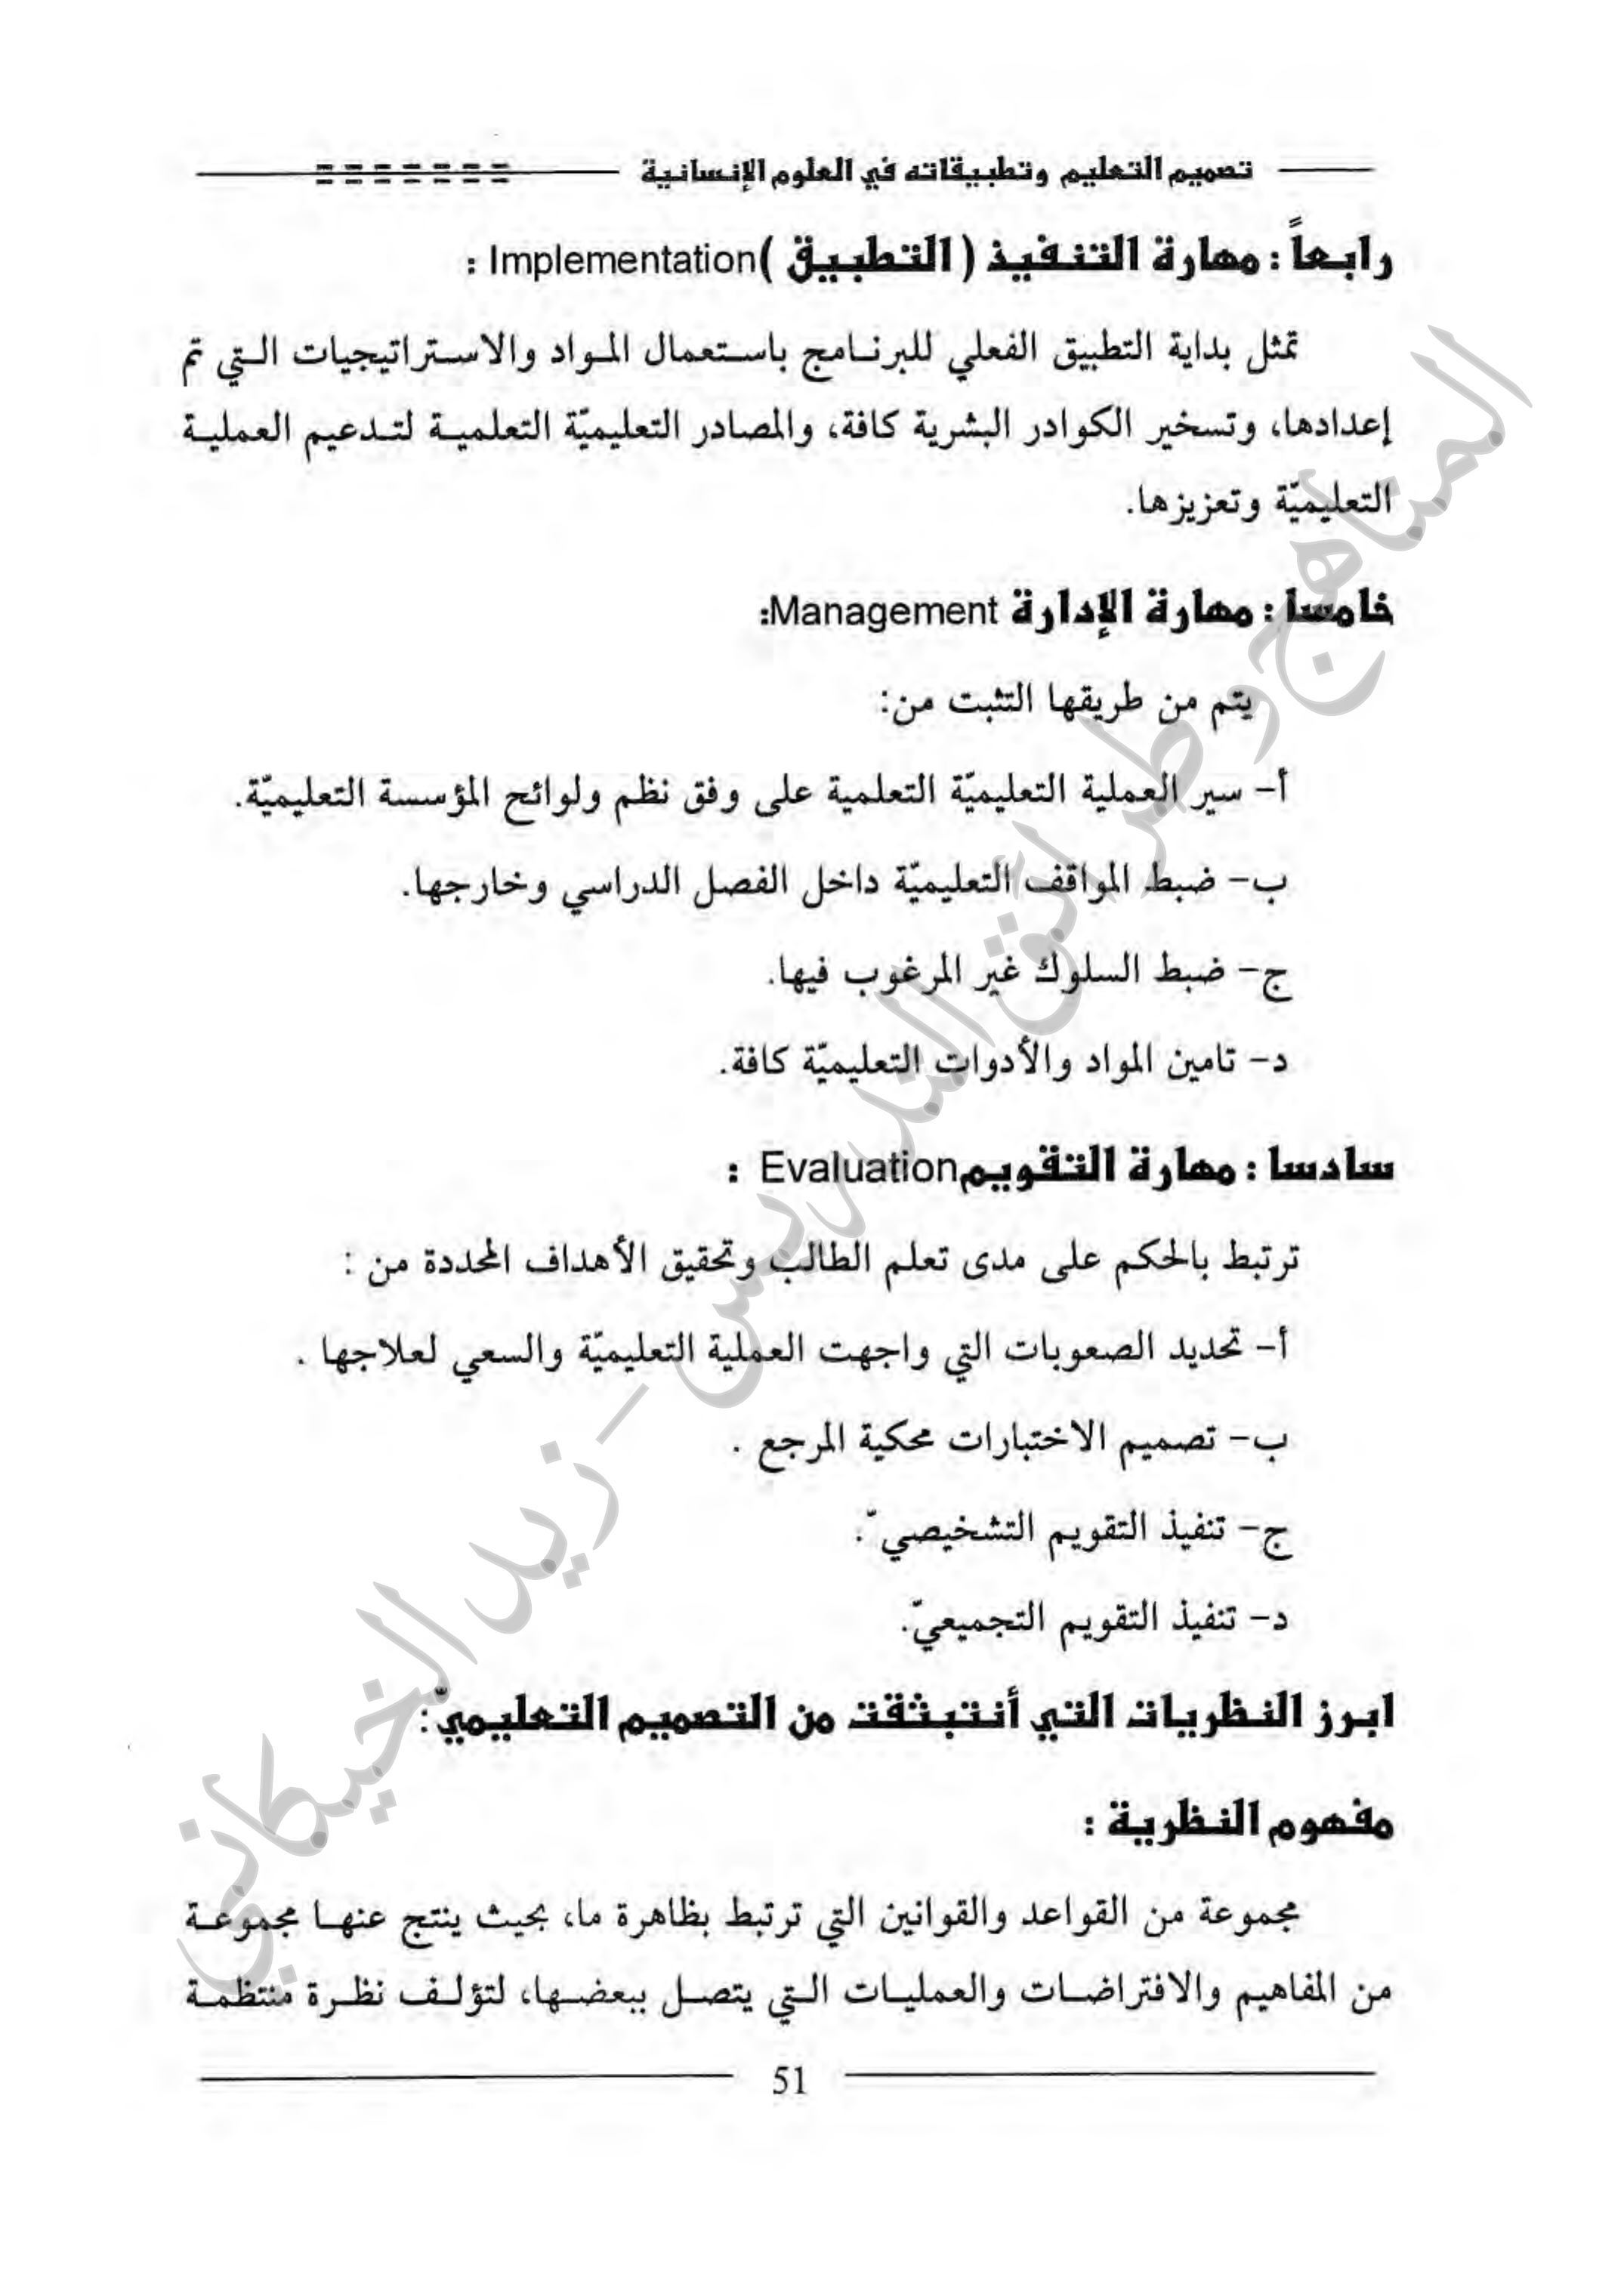 تصميم التعليم وتطبيقاته في العلوم الإنسانية
رابعاً : مهارة التنفيذ ( التطبيق )Implementation :
تمثل بداية التطبيق الفعلي للبرنامج باستعمال المواد والاستراتيجيات التي تم
إعدادها، وتسخير الكوادر البشرية كافة، والمصادر التعليميّة التعلمية لتدعيم العملية
التعليميّة وتعزيزها.
خامسا : مهارة الإدارة Management:
يتم من طريقها التثبت من:
أ- سير العملية التعليميّة التعلمية على وفق نظم ولوائح المؤسسة التعليميّة.
ب- ضبط المواقف التعليميّة داخل الفصل الدراسي وخارجها.
ج- ضبط السلوك غير المرغوب فيها.
د- تامين المواد والأدوات التعليميّة كافة.
سادسا : مهارة التقويمEvaluation :
ترتبط بالحكم على مدى تعلم الطالب وتحقيق الأهداف المحددة من :
أ- تحديد الصعوبات التي واجهت العملية التعليميّة والسعي لعلاجها .
ب- تصميم الاختبارات محكية المرجع .
ج- تنفيذ التقويم التشخيصي ّ.
د- تنفيذ التقويم التجميعيّ.
ابرز النظريات التي أنتبثقت من التصميم التعليميّ:
مفهوم النظرية :
مجموعة من القواعد والقوانين التي ترتبط بظاهرة ما، بحيث ينتج عنها مجموعة
من المفاهيم والافتراضات والعمليات التي يتصل ببعضها، لتؤلف نظرة منتظمة
51
المناهج وطرائق التدريس - زيد الخيكاني